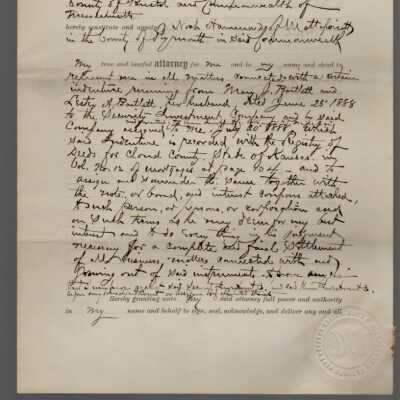 County of Bristol and Commonwealth of
Massachusetts
hereby constitute and appoint Noah Hammond of Mattapoisett
in the County of Plymouth in said Commonwealth
my true and lawful attorney for me and in my name and stead to
represent me in all matters connected with a certain
indenture running from Mary J. Bartlett and
Bartlett, her husband, dated June 25 1888
to the Security Investment Company and by said
Company assigned to me, July 20 1888 which
said Indenture is recorded with the Registry of
Deeds for Cloud County, State of Kansas in
Vol. No. 12 of mortgages at page and to
assign and surrender the same together with
the note, or bond, and interest coupons attached,
to such person, or persons, or corporation and
on such terms as he may deem for my best
interest and to do every thing in his judgment
necessary for a complete and final settlement
of all business matters connected with and
growing out of said instrument.
Hereby granting unto my said attorney full power and authority
in my name and behalf to sign, seal, acknowledge, and deliver any and all